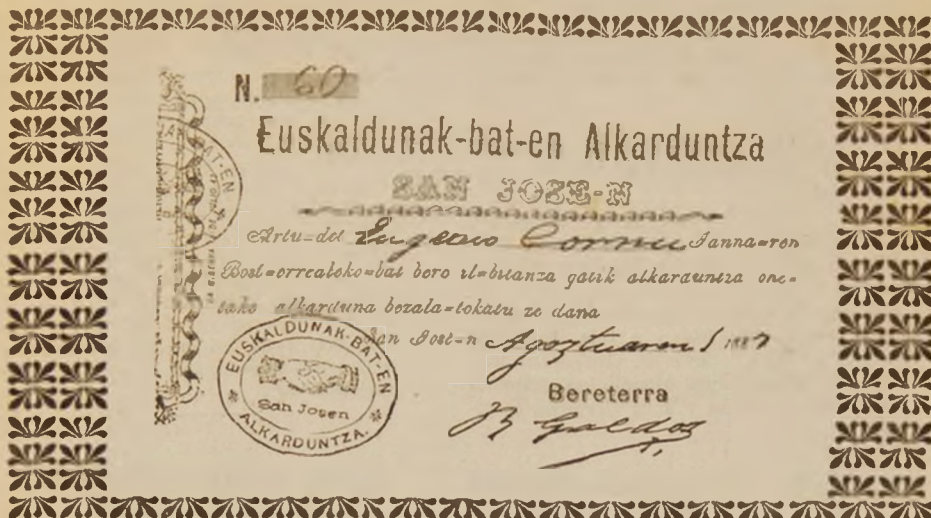 N. 60
Euskaldunak-bat-en Alkarduntza
SAN JOSE-N
Artu-det Eugenio Cornu Janna-ren
Bost-orrealeko-bat bero il-bitanza gatik alkarduntza one-
tako alkarduna bezala-tokatu ze dana
San José-n Agoztuaren 1 188
EUSKALDUNAK-BAT-EN
San Josen
ALKARDUNTZA.
Bereterra
B Galdos